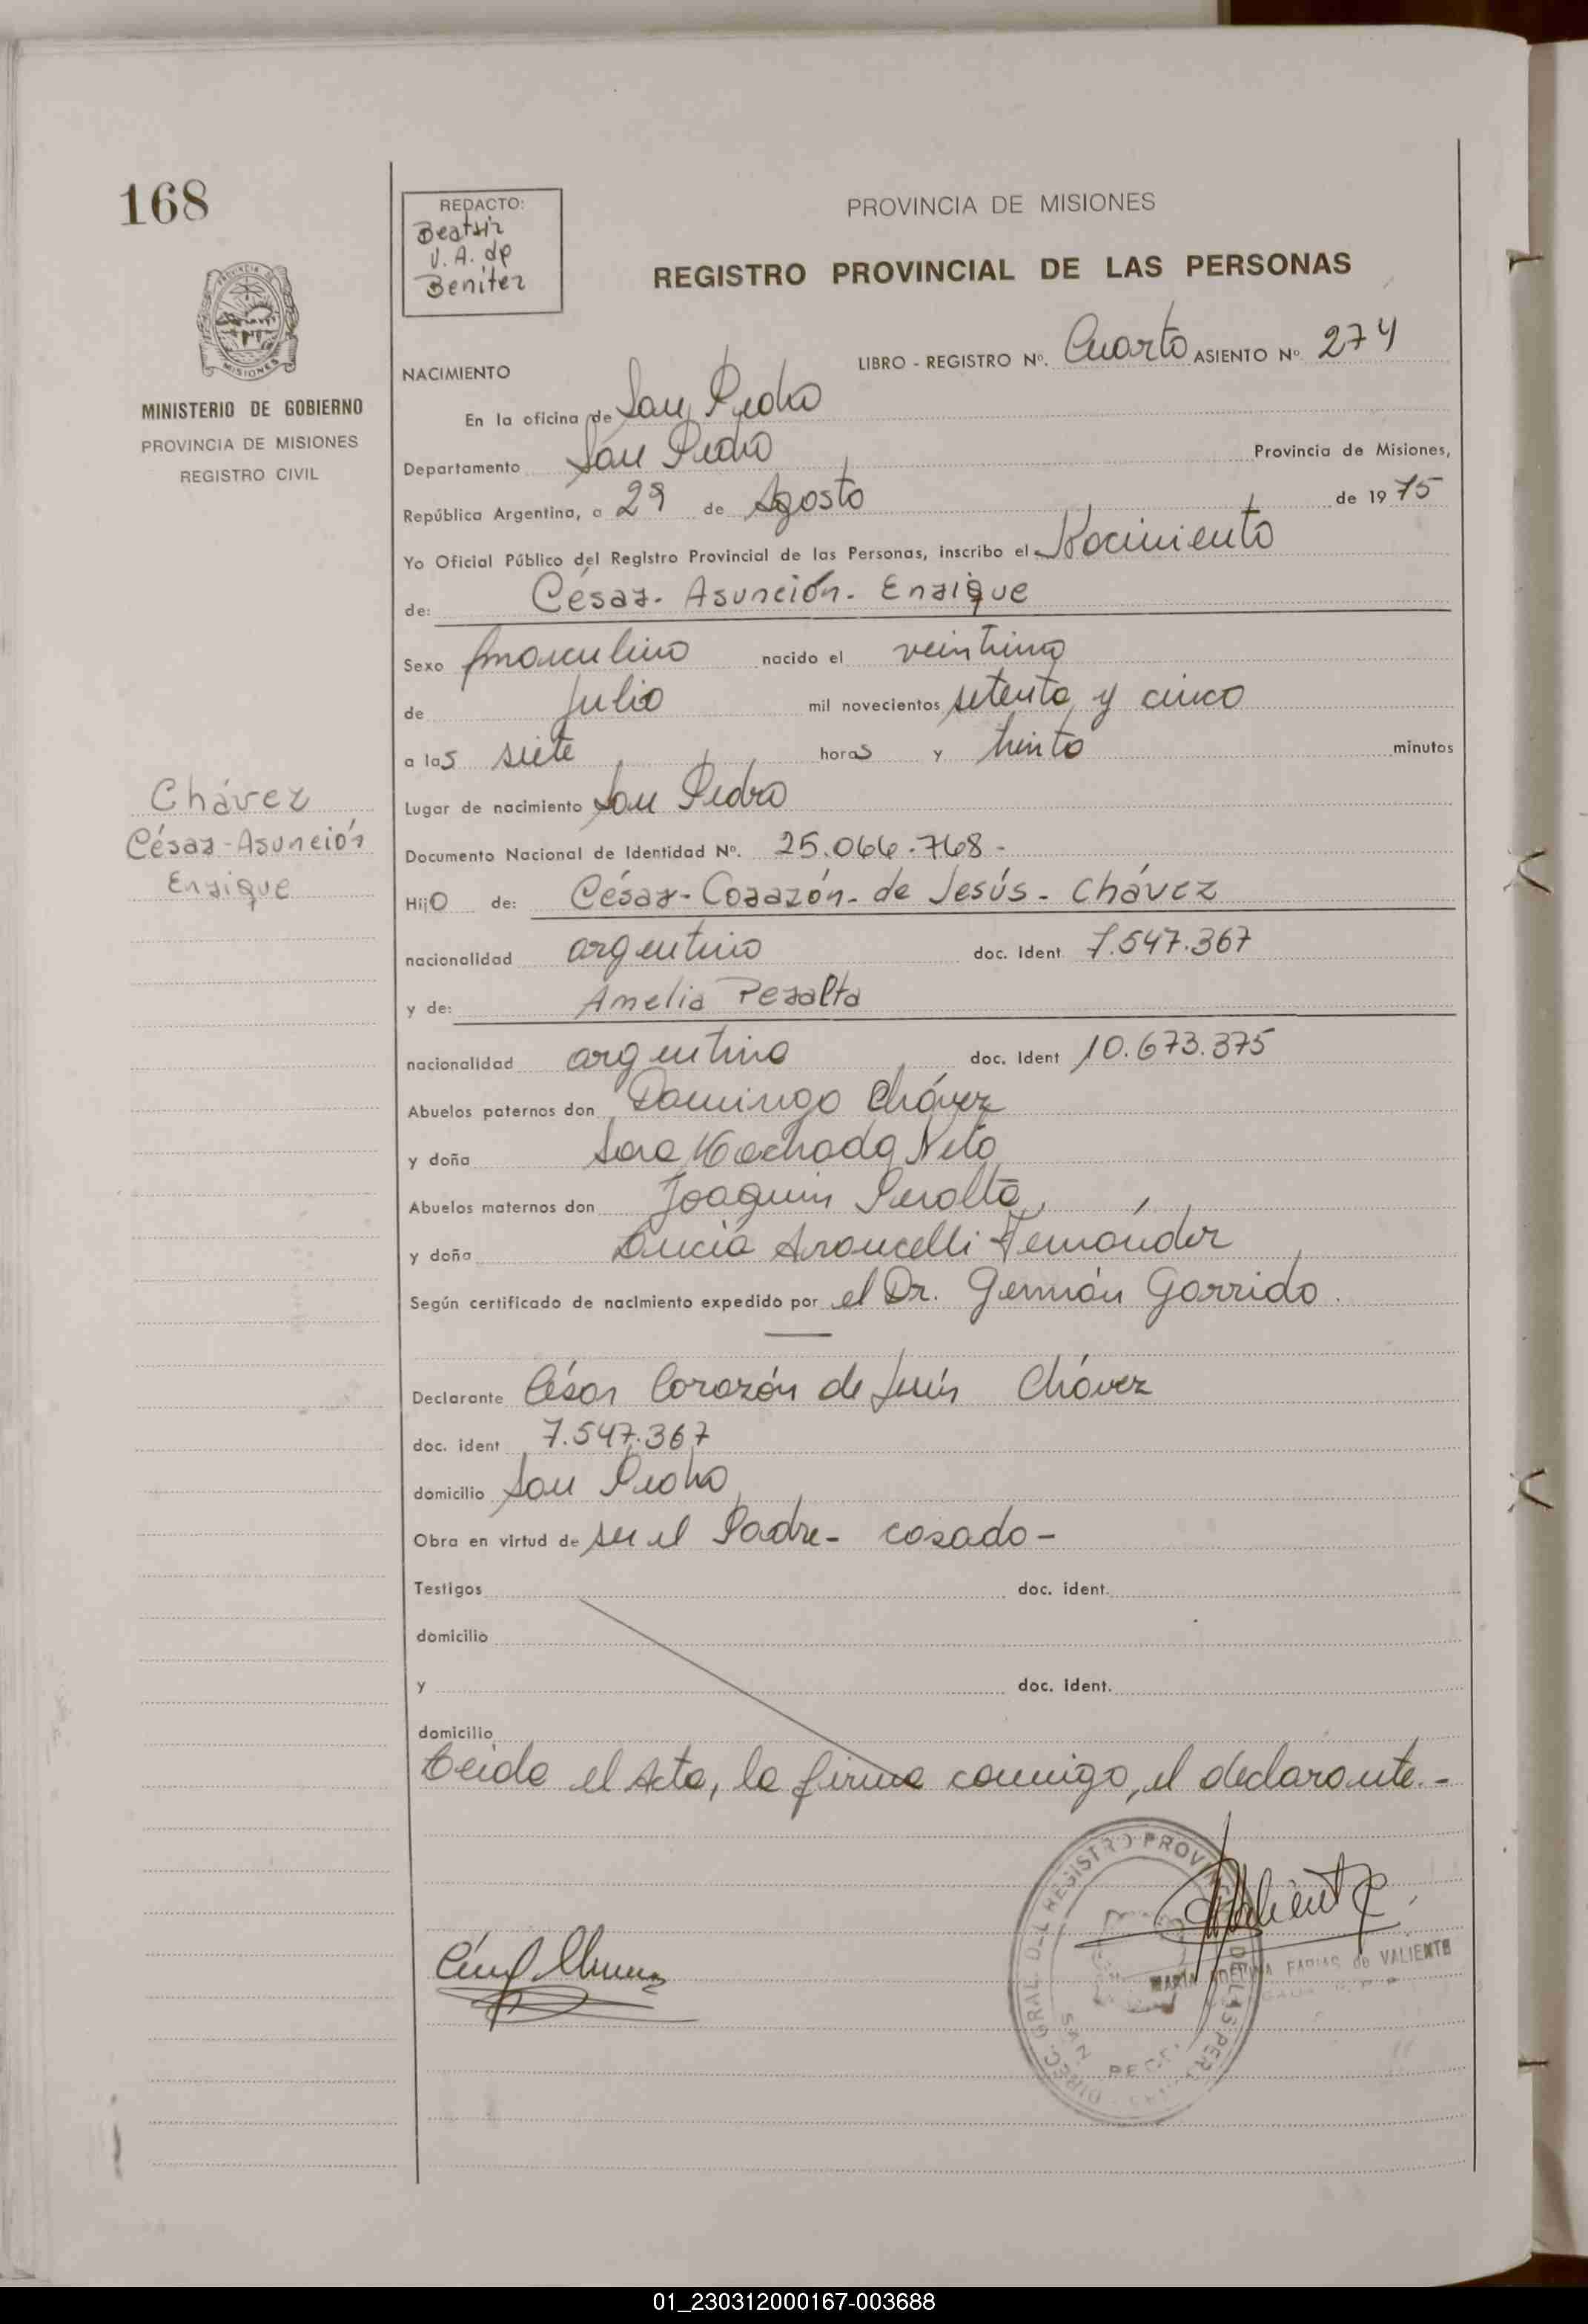 168
REDACTO:
Beatriz
V. A. de
Benítez
PROVINCIA DE MISIONES
REGISTRO PROVINCIAL DE LAS PERSONAS
MISIONES
MINISTERIO DE GOBIERNO
PROVINCIA DE MISIONES
REGISTRO CIVIL
LIBRO - REGISTRO Nº. Cuarto ASIENTO Nº 274
NACIMIENTO
En la oficina de San Pedro
Departamento San Pedro Provincia de Misiones,
República Argentina, a 29 de Agosto de 1975
Yo Oficial Público del Registro Provincial de las Personas, inscribo el Nacimiento
de: César- Asunción- Enrique
Sexo masculino nacido el veintiuno
de Julio mil novecientos setenta y cinco
a las siete horas y treinta minutos
Lugar de nacimiento San Pedro
Chávez
César-Asunción
Enrique
Documento Nacional de Identidad Nº. 25.066.768-
Hijo de: César-Corazón-de Jesús- Chávez
nacionalidad argentino doc. Ident 7.547.367
y de: Amelia Peralta
nacionalidad argentina doc. Ident 10.673.375
Abuelos paternos don Domingo Chávez
y doña Sara Machado Neto
Abuelos maternos don Joaquin Peralta
y doña Lucia Arancelli Fernández
Según certificado de nacimiento expedido por el Dr. Germán Garrido.
Declarante César Corazón de Jesús Chávez
doc. ident 7.547.367
domicilio San Pedro
Obra en virtud de ser el Padre- casado-
Testigos doc. ident.
domicilio
y doc. ident.
domicilio
Leida el Acta, la firma conmigo, el declarante.-
DIREC. GRAL. DEL REGISTRO PROVINC DE LAS PER
SAN PEDRO
MARIA FARIAS de VALIENTE
01_230312000167-003688